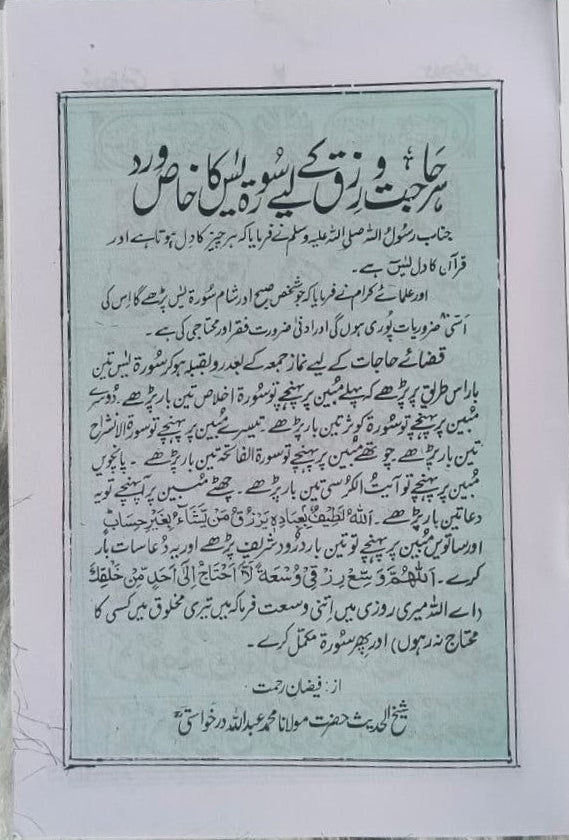 ہر حاجت و رزق کے لیے سُورۃ یٰسٓ کا خاص ورد
جناب رسُولُ اللہ صلی اللہ علیہ وسلم نے فرمایا کہ ہر چیز کا دِل ہوتا ہے اور
قرآن کا دل یٰسٓ ہے۔
اور علمائے کرام نے فرمایا کہ جو شخص صبح اور شام سُورۃ یٰسٓ پڑھے گا اِس کی
اَسّی ضروریات پوُری ہوں گی اور ادنیٰ ضرورت فقر اور محتاجی کی ہے۔
قضائے حاجات کے لیے نماز جمعہ کے بعد رو بقبلہ ہو کر سُورۃ یٰسٓ تین
بار اس طریق پر پڑھے کہ پہلے مُبین پر پہنچے تو سُورۃ اخلاص تین بار پڑھے۔ دُوسرے
مُبین پر پہنچے تو سُورۃ کوثر تین بار پڑھے۔ تیسرے مُبین پر پہنچے تو سورۃ الانشراح
تین بار پڑھے۔ چوتھے مُبین پر پہنچے تو سورۃ الفاتحہ تین بار پڑھے۔ پانچویں
مُبین پر پہنچے تو آیت الکرسی تین بار پڑھے۔ چھٹے مُبین پر آپہنچے تو یہ
دعا تین بار پڑھے۔ اَللہُ لَطِیفٌۢ بِعِبَادِہٖ یَرْزُقُ مَنْ یَّشَآءُ بِغَیْرِ حِسَابٍ
اور ساتویں مُبین پر پہنچے تو تین بار درُود شریف پڑھے اور یہ دُعا سات بار
کرے۔ اَللّٰھُمَّ وَسِّعْ رِزْقِیْ وُسْعَۃً لَّا اَحْتَاجُ اِلٰی اَحَدٍ مِّنْ خَلْقِكَ
(اے اللہ میری روزی میں اِتنی وسعت فرما کہ میں تیری مخلوق میں کسی کا
محتاج نہ رہوں) اور پھر سُورۃ مکمّل کرے۔
از: فیضان رحمت
شیخ الحدیث حضرت مولانا محمد عبد اللہ درخواستیؒ